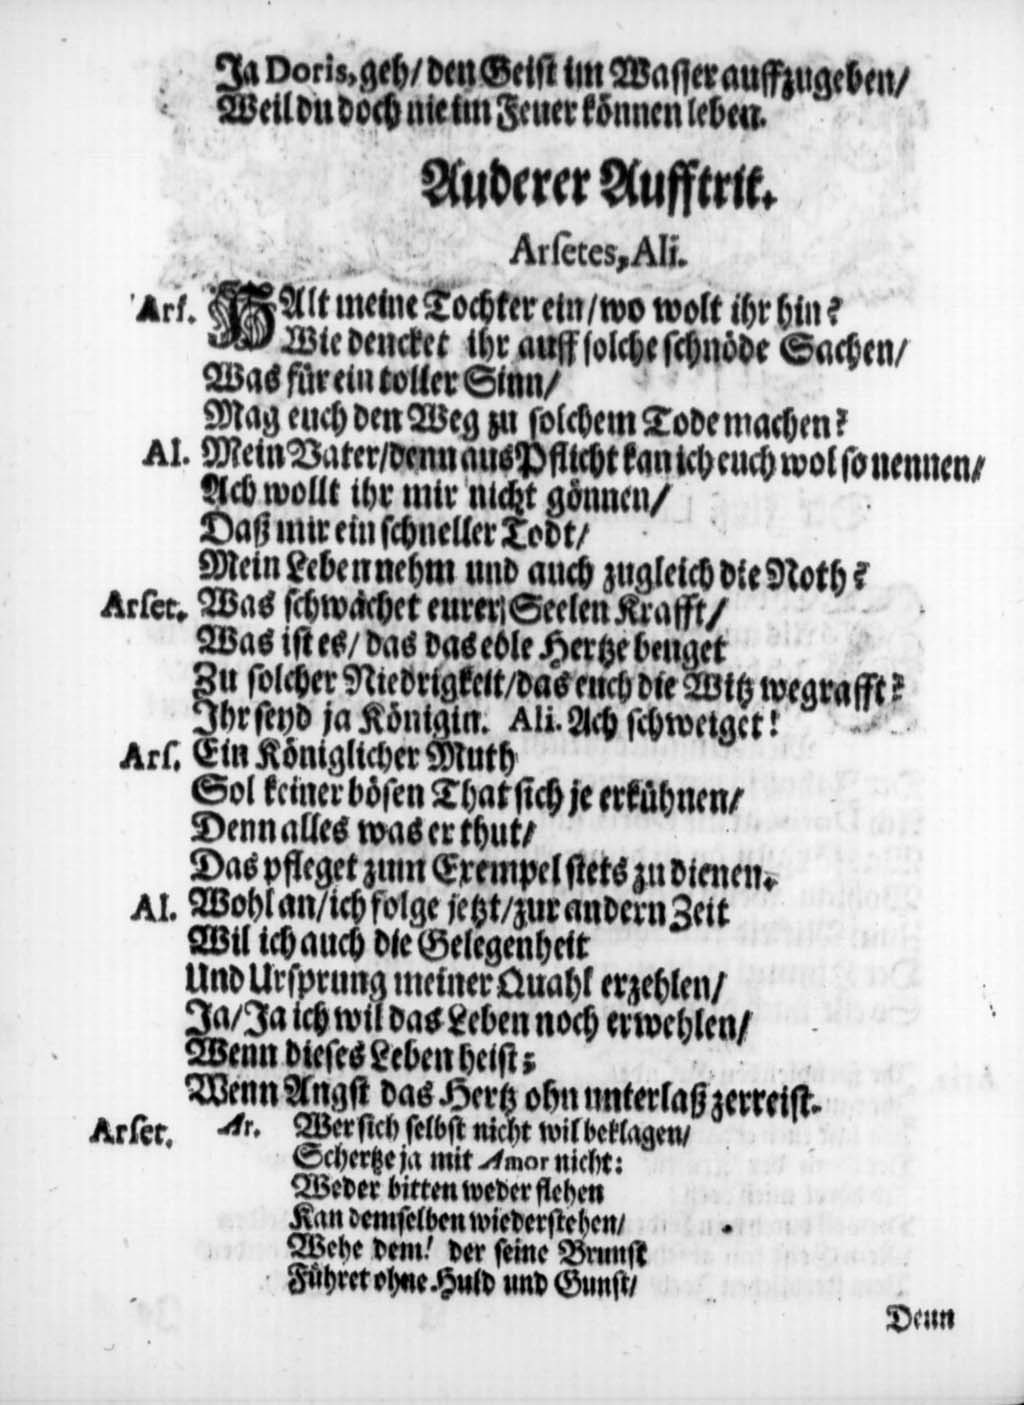 Ja Doris, geh/ den Geist im Wasser auffzugeben/
Weil du doch nie im Feuer können leben.
Anderer Aufftrit.
Arsetes, Ali.
Ars. HAlt meine Tochter ein/ wo wolt ihr hin?
Wie dencket ihr auff solche schnöde Sachen/
Was für ein toller Sinn/
Mag euch den Weg zu solchem Tode machen?
Al. Mein Vater/ denn aus Pflicht kan ich euch wol so nennen/
Ach wollt ihr mir nicht gönnen/
Daß mir ein schneller Todt/
Mein Leben nehm und auch zugleich die Noth?
Arset. Was schwächet eurer Seelen Krafft/
Was ist es/ das das edle Hertze beuget
Zu solcher Niedrigkeit/ das euch die Witz wegrafft?
Ihr seyd ja Königin. Ali. Ach schweiget!
Ars. Ein Königlicher Muth
Sol keiner bösen That sich je erkühnen/
Denn alles was er thut/
Das pfleget zum Exempel stets zu dienen.
Al. Wohl an/ ich folge jetzt/ zur andern Zeit
Wil ich auch die Gelegenheit
Und Ursprung meiner Quahl erzehlen/
Ja/ Ja ich wil das Leben noch erwehlen/
Wenn dieses Leben heist;
Wenn Angst das Hertz ohn unterlaß zerreist.
Arset. Ar. Wer sich selbst nicht wil beklagen/
Schertze ja mit Amor nicht:
Weder bitten weder flehen
Kan demselben wiederstehen/
Wehe dem! der seine Brunst
Führet ohne Huld und Gunst/
Denn